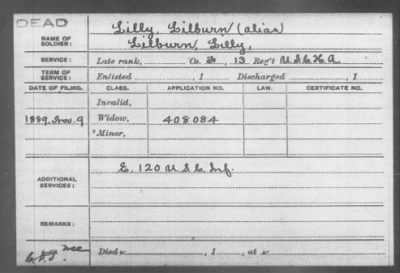 DEAD
NAME OF SOLDIER: Lilly, Lilburn (alias)
Lilburn, Lilly,
SERVICE: Late rank, Co. B, 13 Reg't U.S.C.H.A.
TERM OF SERVICE: Enlisted , 1 Discharged , 1
DATE OF FILING. CLASS. APPLICATION NO. LAW. CERTIFICATE NO.
Invalid,
1889. Nov. 9 Widow, 408084
*Minor,
ADDITIONAL SERVICES: E. 120 U.S.C. Inf.
REMARKS:
Died , 1 , at